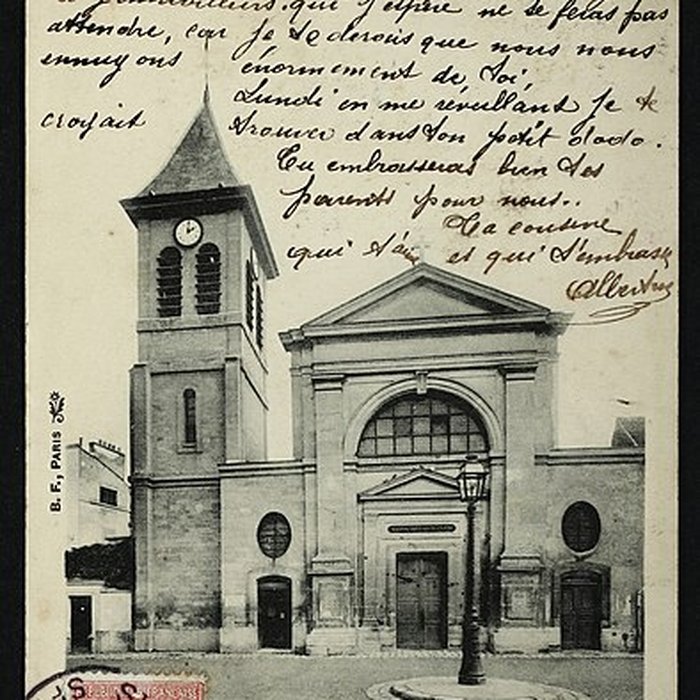 que j'espère ne te feras pas
attendre, car je te dirais que nous nous
ennuyons énormement de toi,
Lundi en me réveillant je te
croyait trouver dans ton petit dodo.
Tu embrasseras bien tes
parents pour nous..
Ta cousine
qui t'aime et qui t'embrasse
B. F., PARIS